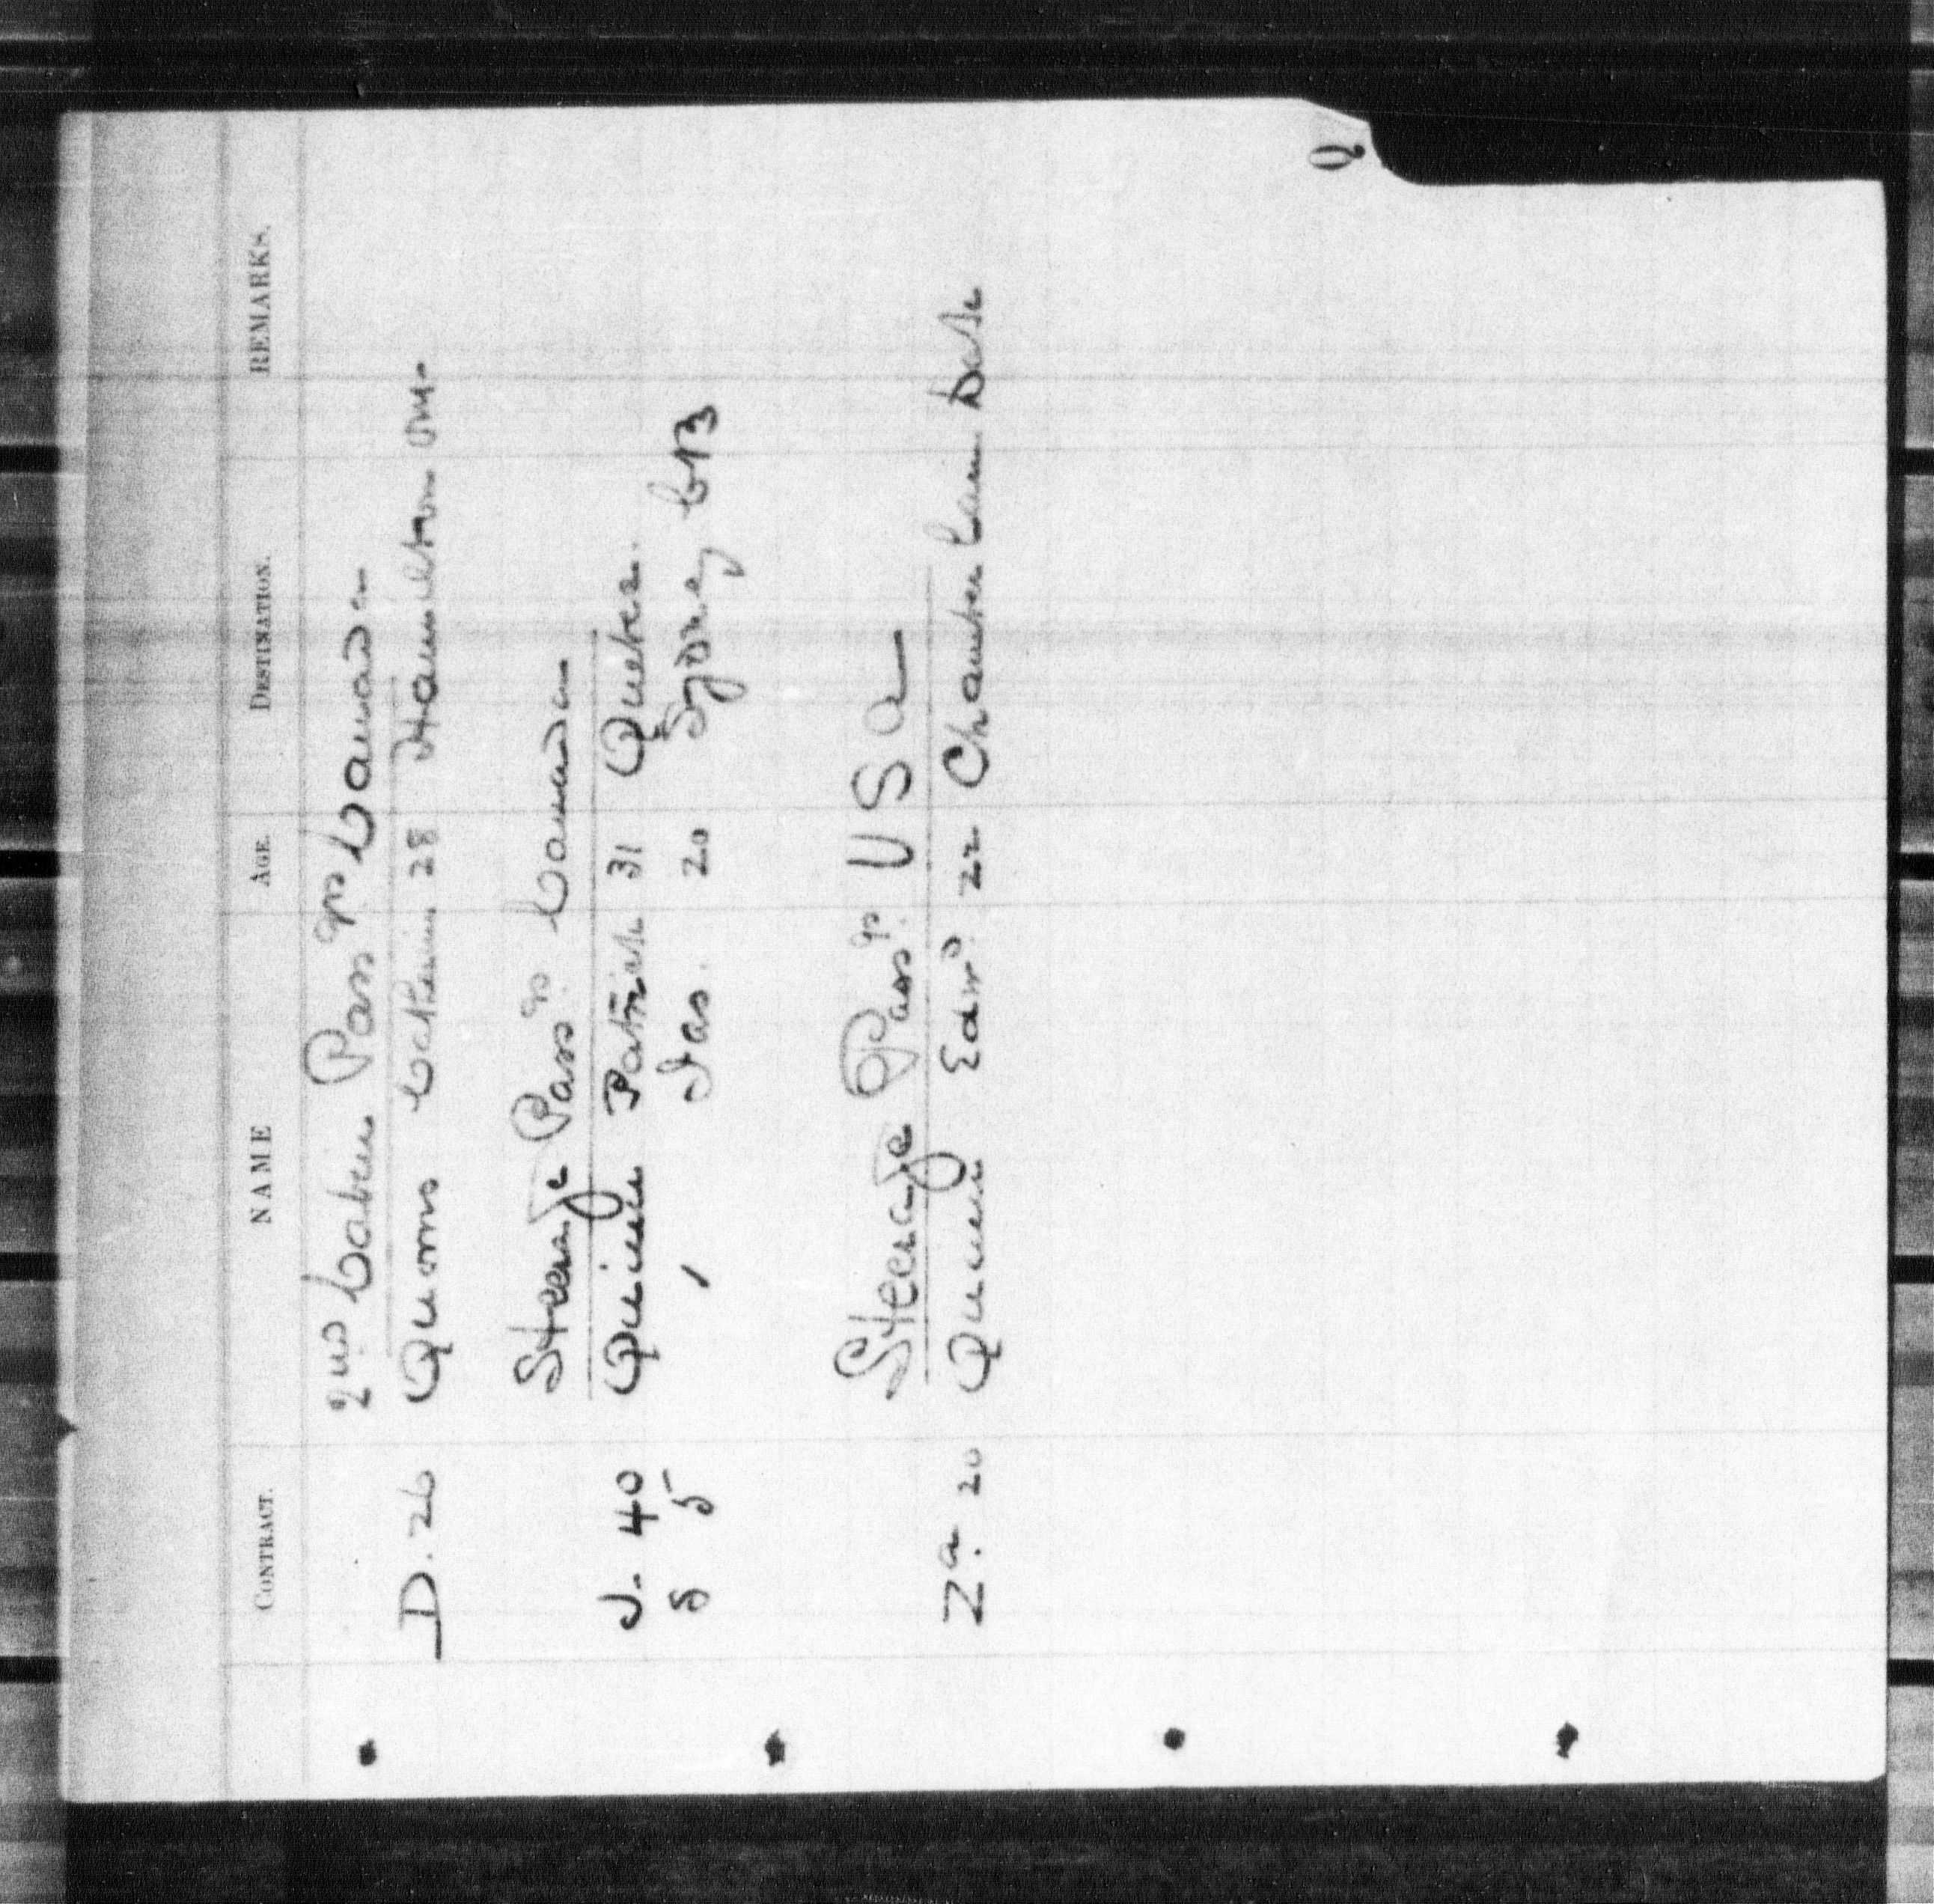 Q
CONTRACT. NAME AGE. DESTINATION. REMARKS.
2nd Cabin Passgrs Canada
D. 26 Quinns Catherine 28 Hamilton Ont
Steerage Passgrs Canada
J. 40 Quinn Patrick 31 Quebec.
5 5 " Jas. 20 Sydney CB
Steerage Passgrs U S a
Za. 20 Quinn Edwd. 22 Chamberlain Dak